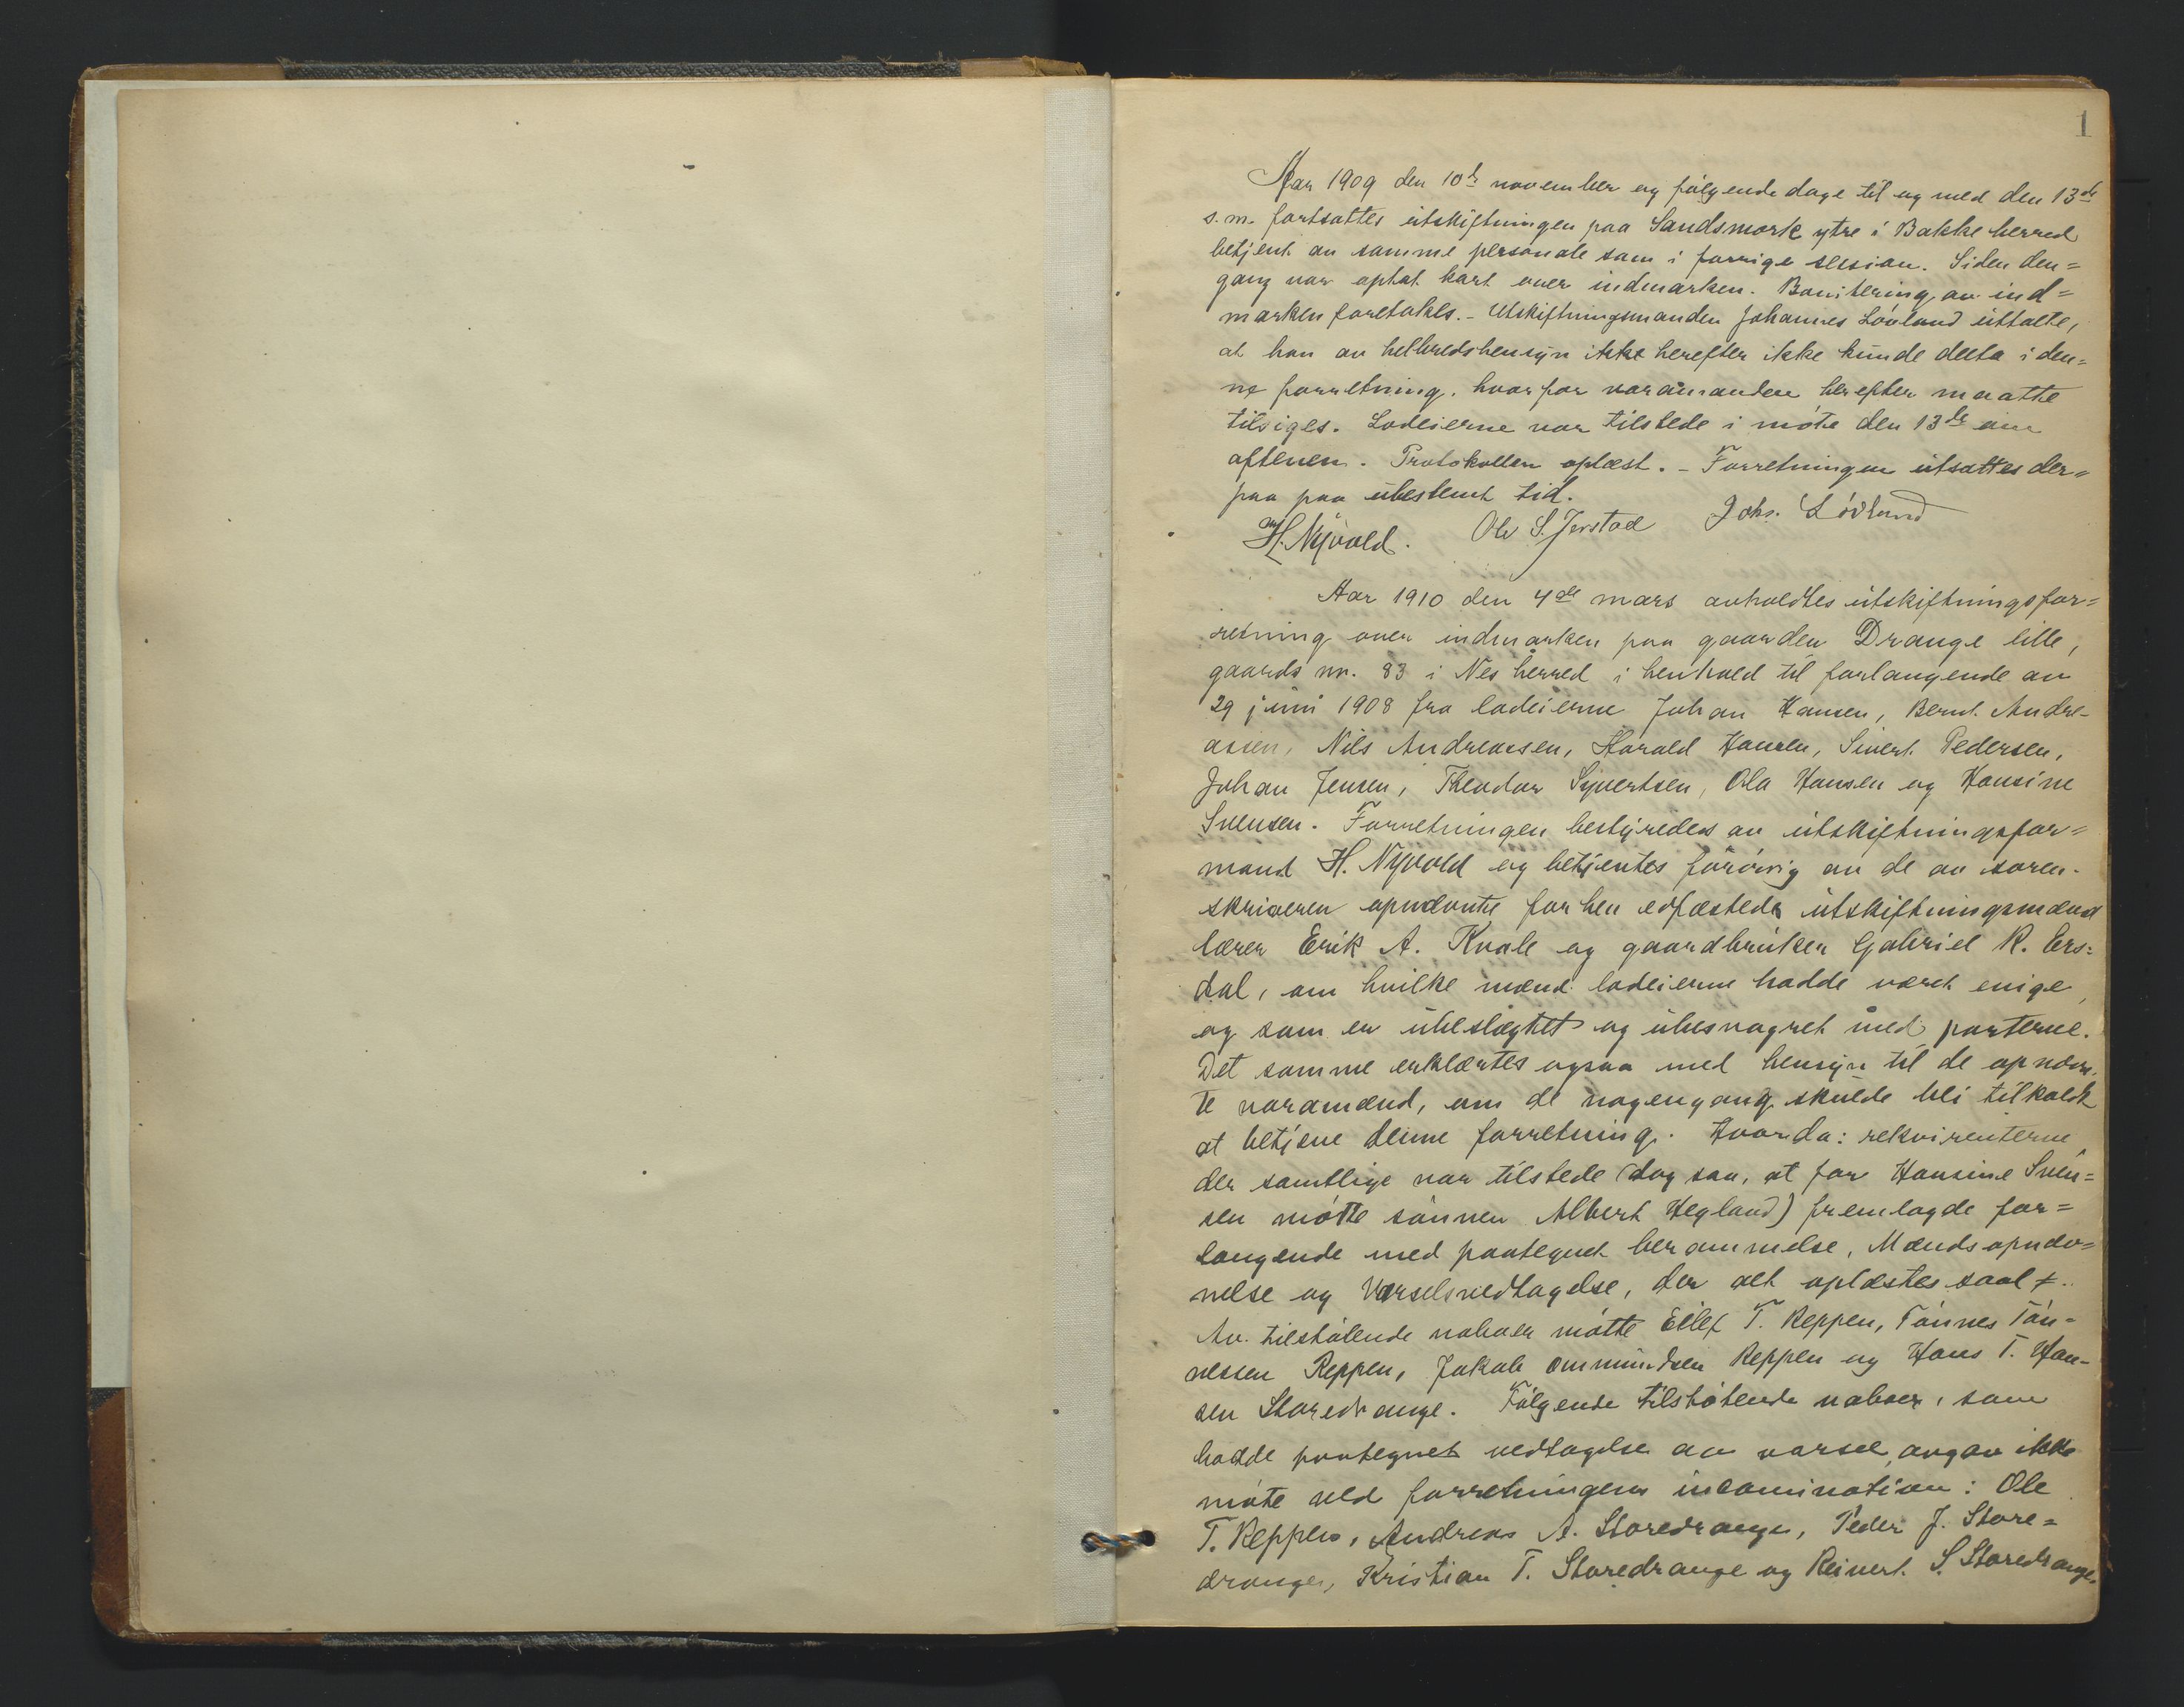 1
Aar 1909 den 10de november og følgende dage til og med den 13de
s.m. fortsattes utskiftningen paa Sandsmork ytre i Bakke herred
betjent av samme personale som i forrige session. Siden den=
gang var optat kart over indmarken. Bonitering av ind=
marken foretokes. - Utskiftningsmanden Johannes Lövland uttalte,
at han av helbredshensyn ikke herefter ikke kunde delta i den=
ne forretning, hvorfor varamanden herefter maatte
tilsiges. Lodeierne var tilstede i möte den 13de om
aftenen. Protokollen oplæst. - Forretningen utsattes der=
paa paa ubestemt tid.
H. Nyvold. Ole S. Jerstad Johs. Lövland
Aar 1910 den 4de mars avholdtes utskiftningsfor=
retning over indmarken paa gaarden Drange lille,
gaards nr. 83 i Nes herred i henhold til forlangende av
29 juni 1908 fra lodeierne Johan Hansen, Bernt Andre-
assen, Nils Andreassen, Harald Hansen, Sivert Pedersen,
Johan Jensen, Theodor Syvertsen, Ola Hansen og Hansine
Svensen. Forretningen bestyredes av utskiftningsfor=
mand H. Nyvold og betjentes forövrig av de av soren-
skriveren opnævnte forhen edfæstede utskiftningsmænd
lærer Erik A. Kvale og gaardbruker Gabriel R. Ers=
dal, om hvilke mænd lodeierne hadde været enige,
og som er ubeslægtet og ubesvogret med parterne.
Det samme erklærtes ogsaa med hensyn til de opnævn-
te varamænd, om de nogengang skulde bli tilkaldt
at betjene denne forretning. Hvorda: rekvirenterne
der samtlige var tilstede (dog saa, at for Hansine Sven=
sen mötte sönnen Albert Hegland) fremlagde for=
langende med paategnet berammelse, Mandsopnæv=
nelse og Varselsvedtagelse, der alt oplæstes saal.
Av tilstötende naboer mötte Eilef T. Reppen, Tönnes Tön-
nessen Reppen, Jakob Ommundsen Reppen og Hans T. Han-
sen Storedrange. Fölgende tilstötende naboer, som
hadde paategnet vedtagelse av varsel, avgav ikke
möte ved forretningens incamination: Ole
T. Reppen, Andreas A. Storedrange, Peder J. Store=
drange, Kristian T. Storedrange og Reinert S. Storedrange.